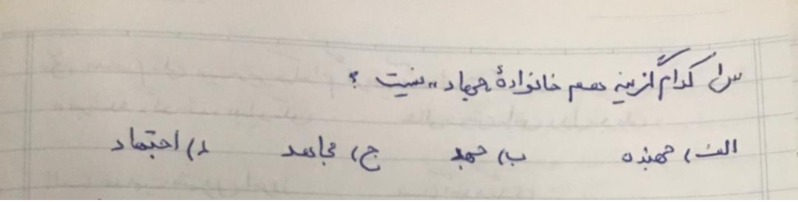 س۱ کدام گزینه هم خانوادهٔ جهاد ،، نیست ؟
الف) جهنده ب) جهد ج) مجاهد د) اجتهاد